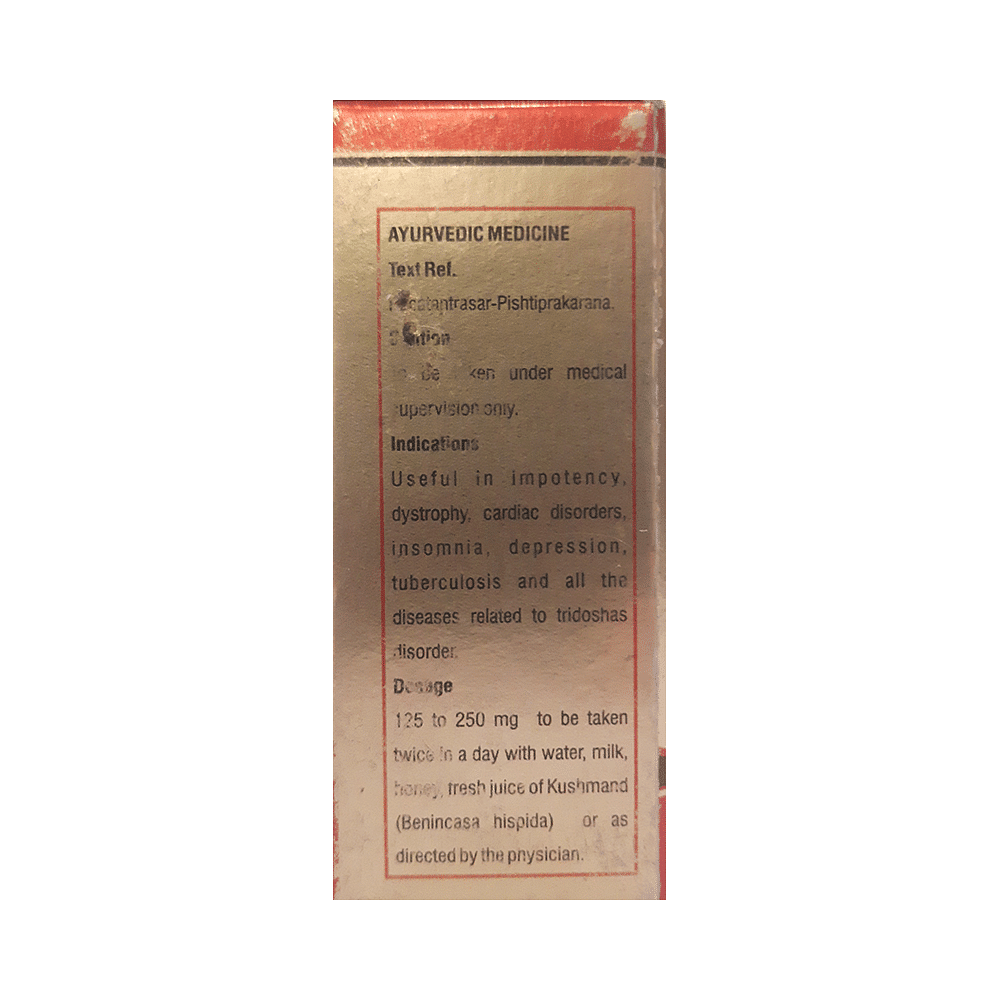 AYURVEDIC MEDICINE
Text Ref.
-Pishtiprakarana.
under medical
supervision only.
Indications
Useful in impotency,
dystrophy, cardiac disorders,
insomnia, depression,
tuberculosis and all the
diseases related to tridoshas
disorder.
Dosage
125 to 250 mg to be taken
twice in a day with water, milk,
honey, fresh juice of Kushmand
(Benincasa hispida) or as
directed by the physician.